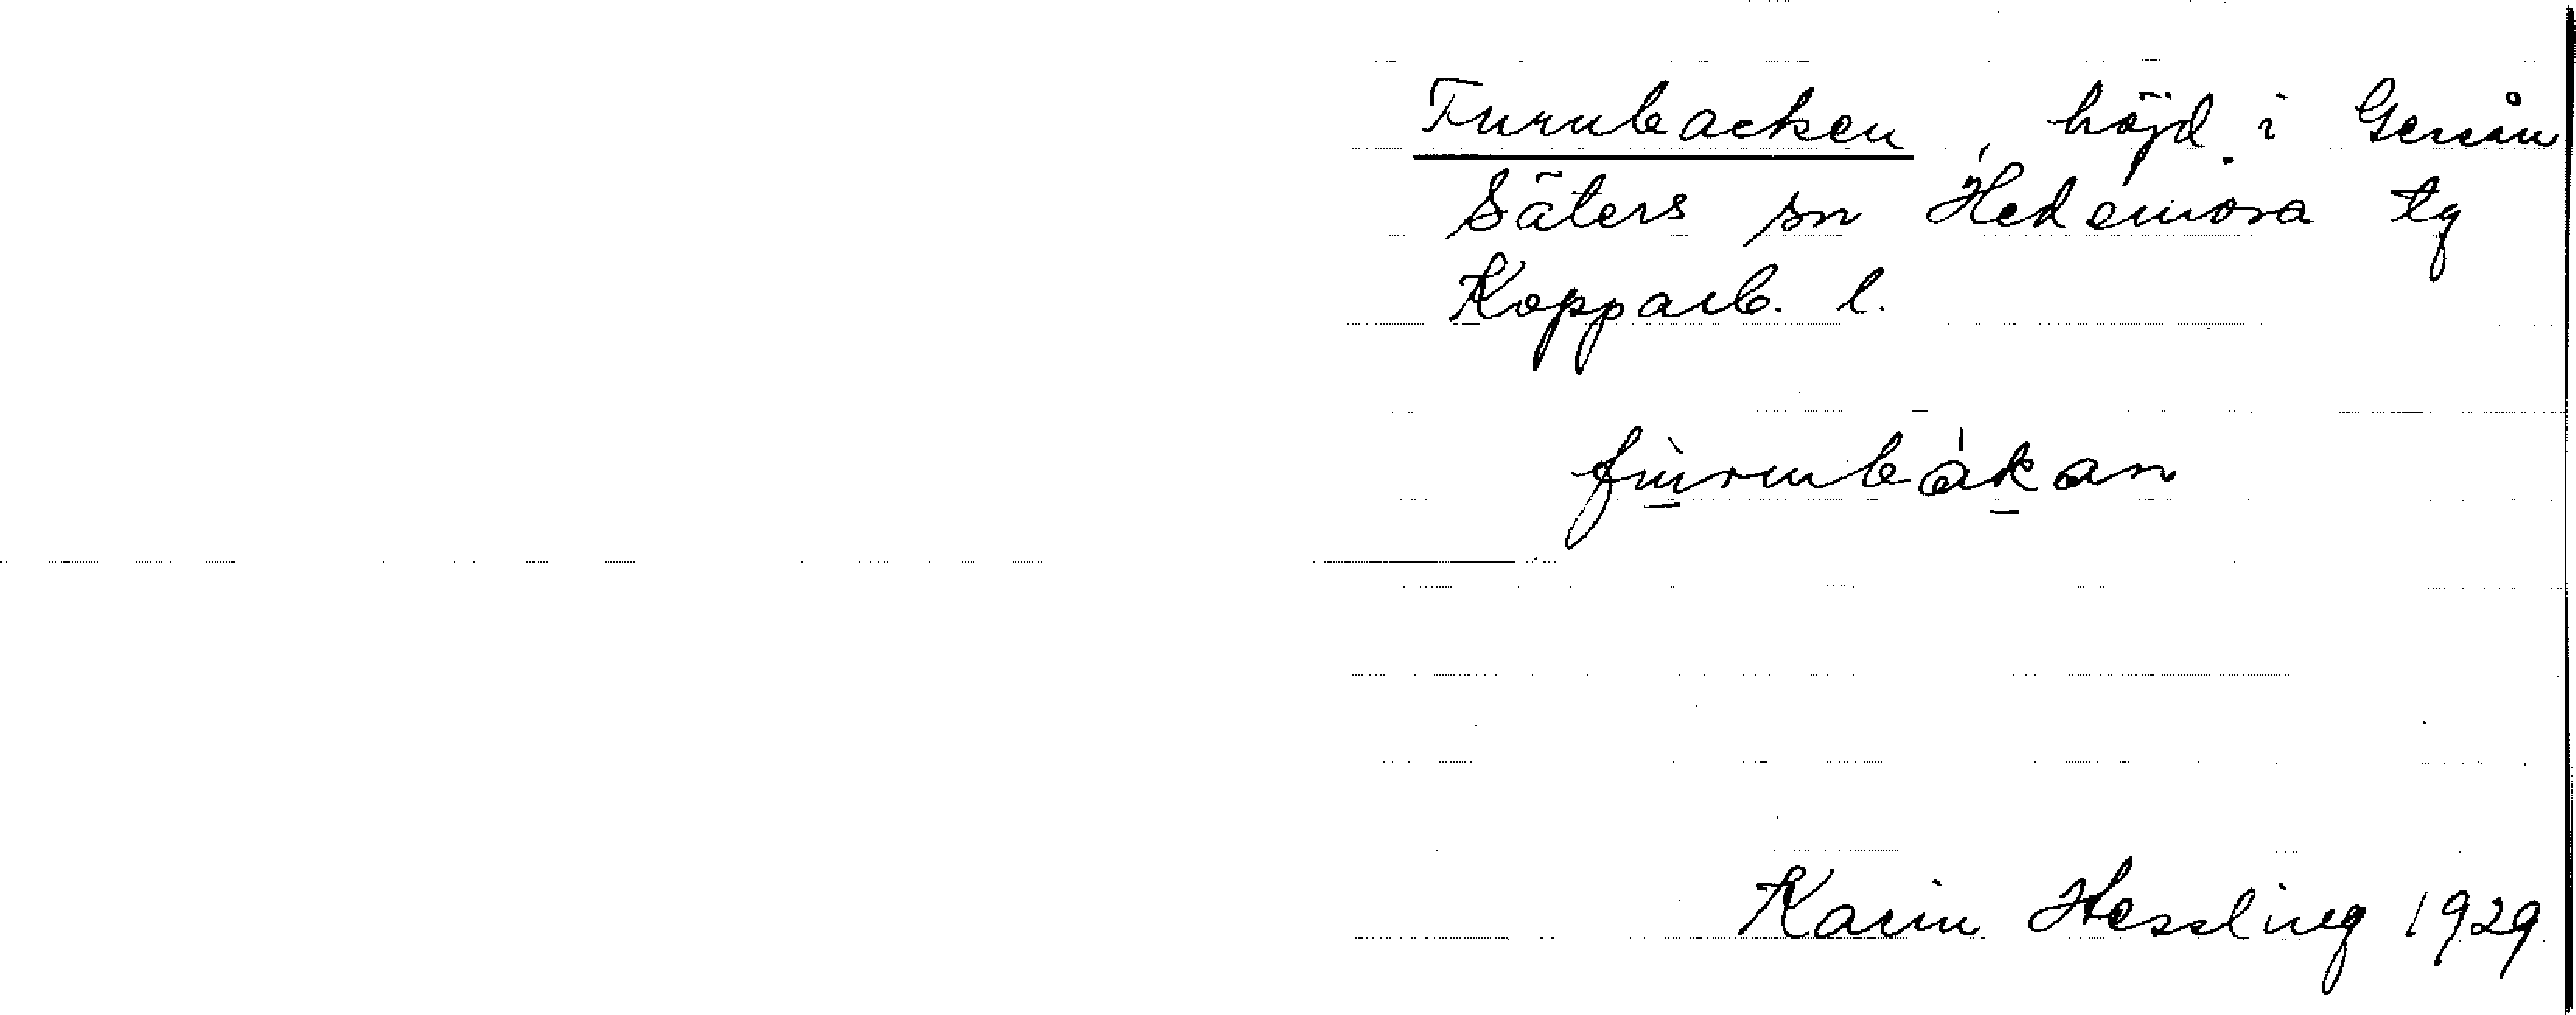 Furubacken, höjd i Gerån
Säters sn Hedemora tg
Kopparb. l.
fùrubákan
Karin Hessling 1929